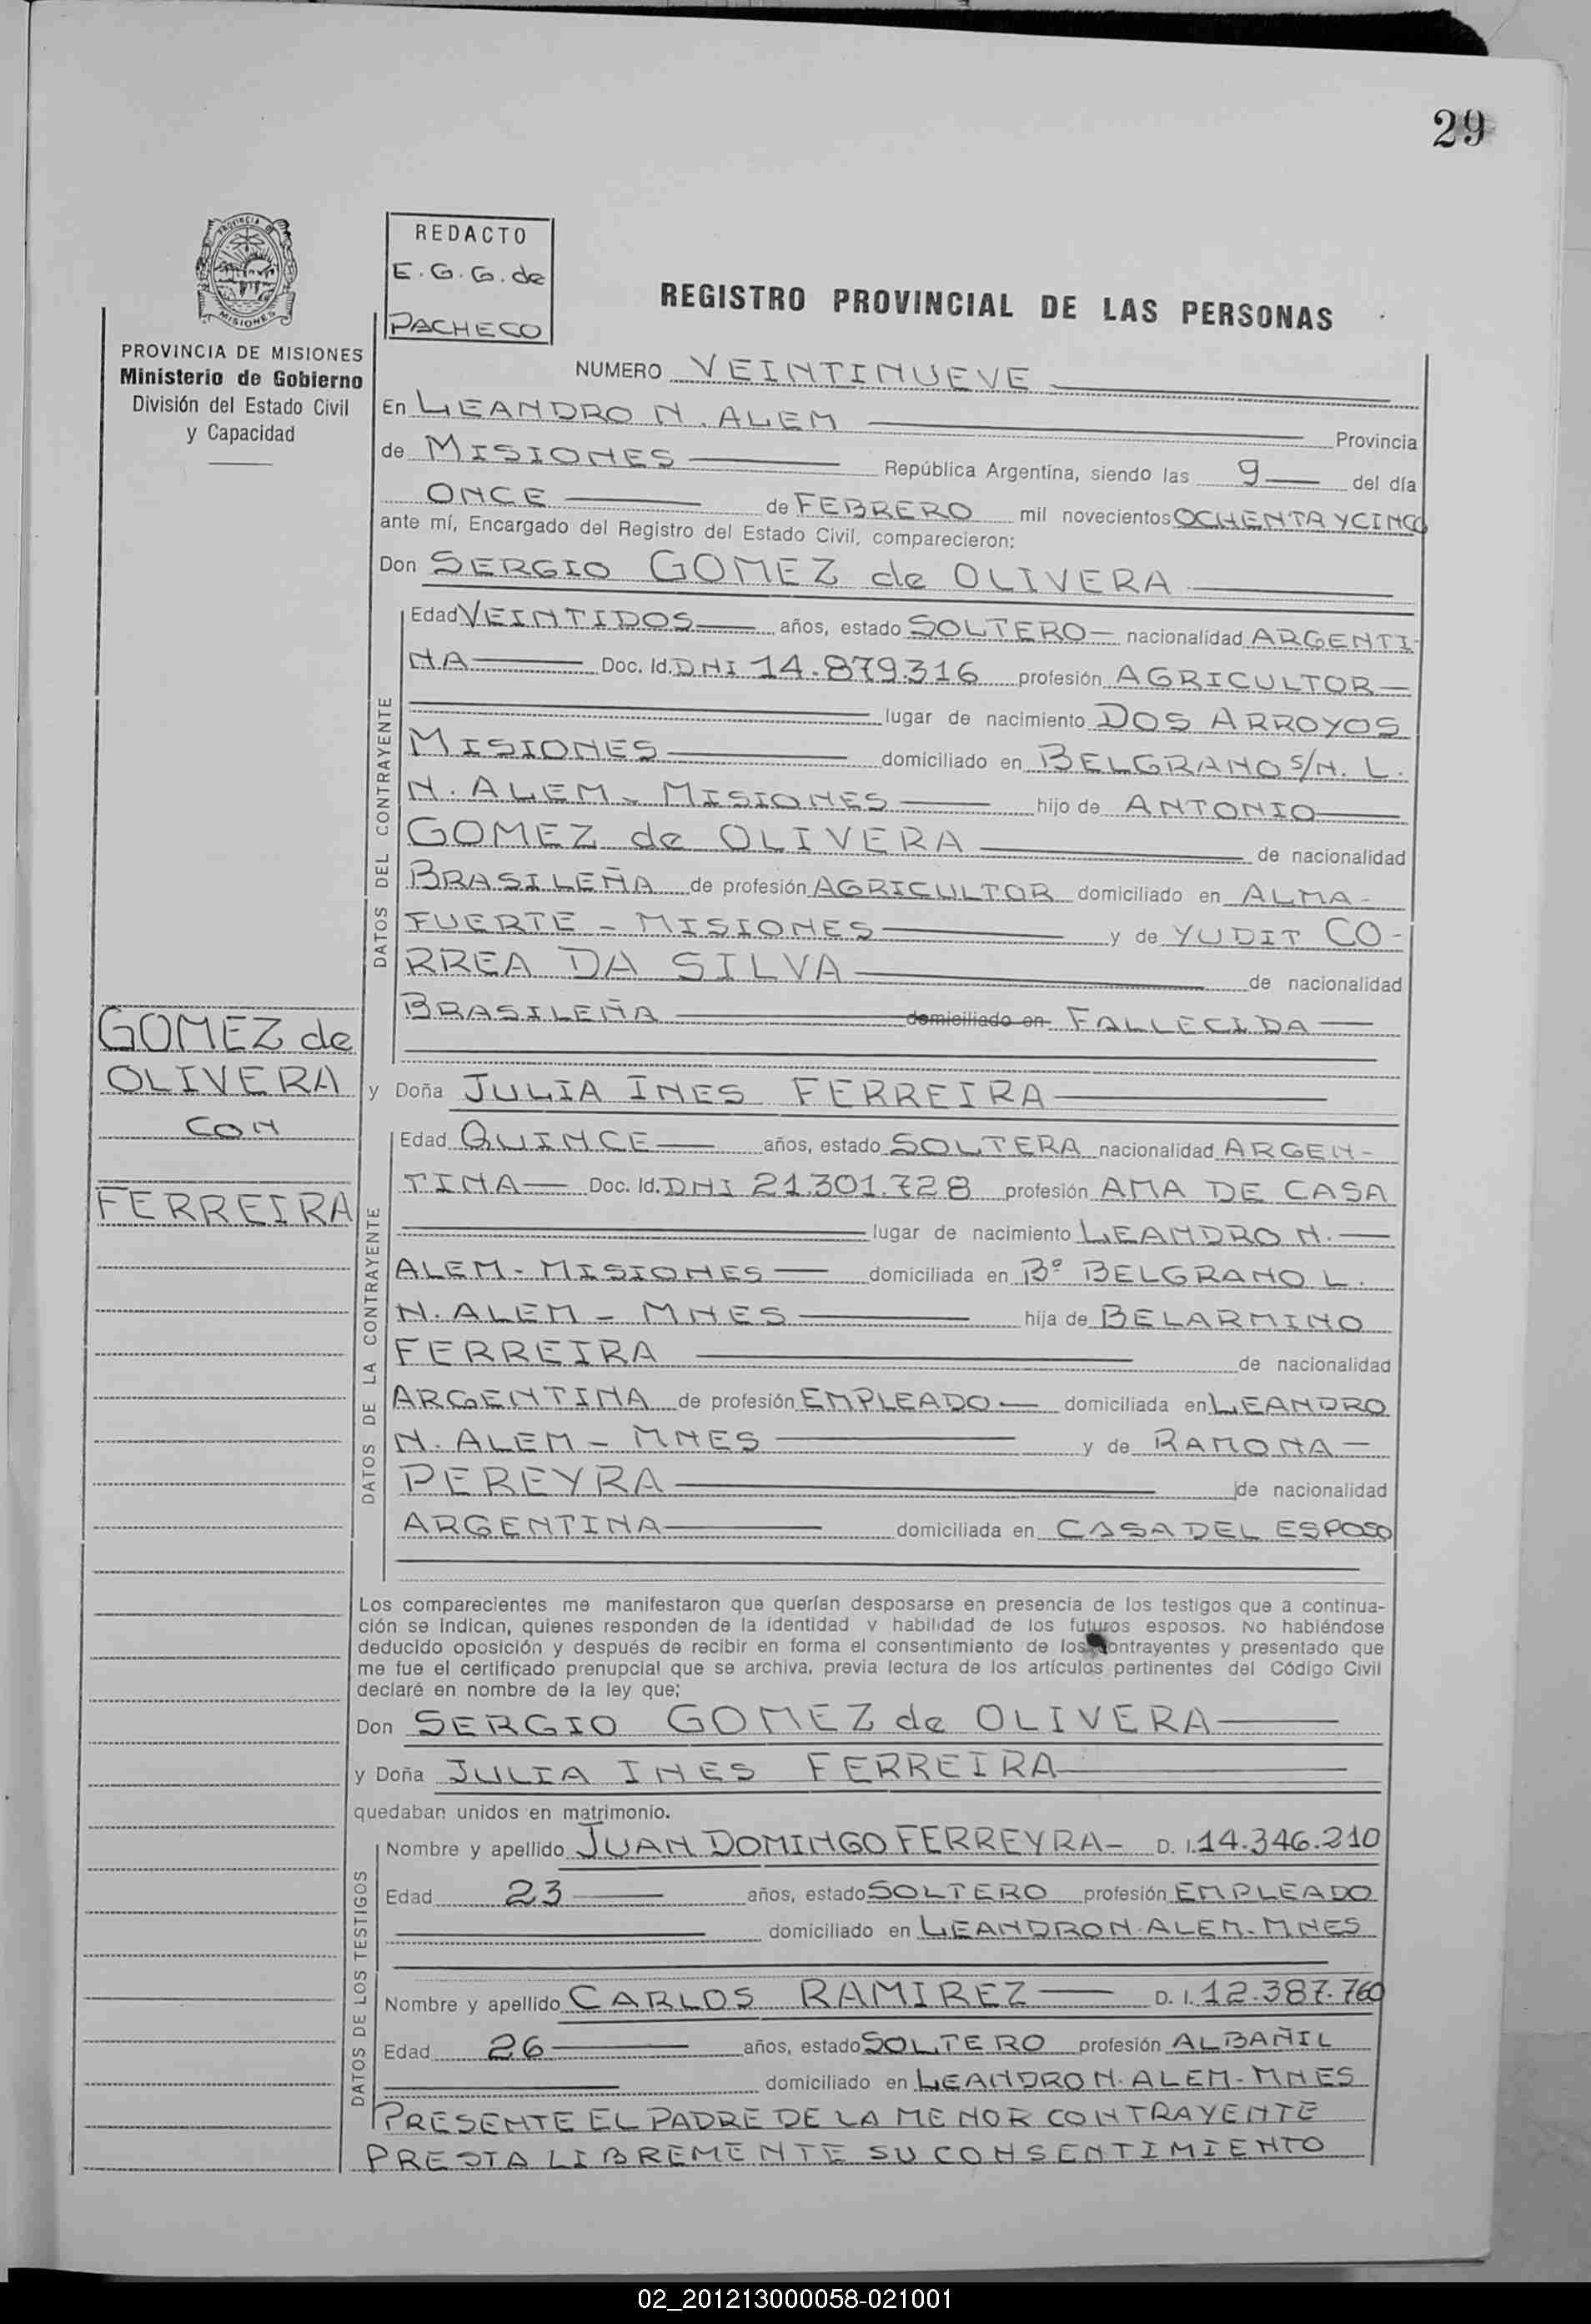 29
PROVINCIA DE
MISIONES
PROVINCIA DE MISIONES
Ministerio de Gobierno
División del Estado Civil
y Capacidad
REDACTO
E.G.G. de
PACHECO
REGISTRO PROVINCIAL DE LAS PERSONAS
NUMERO VEINTINUEVE
En LEANDRO N. ALEM Provincia
de MISIONES República Argentina, siendo las 9 del día
ONCE de FEBRERO mil novecientos OCHENTA Y CINCO
ante mí, Encargado del Registro del Estado Civil, comparecieron:
Don SERGIO GOMEZ de OLIVERA
DATOS DEL CONTRAYENTE
Edad VEINTIDOS años, estado SOLTERO nacionalidad ARGENTI-
NA Doc. Id. DNI 14.879.316 profesión AGRICULTOR
lugar de nacimiento DOS ARROYOS
MISIONES domiciliado en BELGRANO S/N. L.
N. ALEM - MISIONES hijo de ANTONIO
GOMEZ de OLIVERA de nacionalidad
BRASILEÑA de profesión AGRICULTOR domiciliado en ALMA-
FUERTE - MISIONES y de YUDIT CO-
RREA DA SILVA de nacionalidad
BRASILEÑA domiciliado en FALLECIDA
GOMEZ de
OLIVERA
CON
FERREIRA
y Doña JULIA INES FERREIRA
DATOS DE LA CONTRAYENTE
Edad QUINCE años, estado SOLTERA nacionalidad ARGEN-
TINA Doc. Id. DNI 21.301.728 profesión AMA DE CASA
lugar de nacimiento LEANDRO N.
ALEM - MISIONES domiciliada en Bº BELGRANO L.
N. ALEM - MNES hija de BELARMINO
FERREIRA de nacionalidad
ARGENTINA de profesión EMPLEADO domiciliada en LEANDRO
N. ALEM - MNES y de RAMONA
PEREYRA de nacionalidad
ARGENTINA domiciliada en CASA DEL ESPOSO
Los comparecientes me manifestaron que querían desposarse en presencia de los testigos que a continua-
ción se indican, quienes responden de la identidad y habilidad de los futuros esposos. No habiéndose
deducido oposición y después de recibir en forma el consentimiento de los contrayentes y presentado que
me fue el certificado prenupcial que se archiva, previa lectura de los artículos pertinentes del Código Civil
declaré en nombre de la ley que:
Don SERGIO GOMEZ de OLIVERA
y Doña JULIA INES FERREIRA
quedaban unidos en matrimonio.
DATOS DE LOS TESTIGOS
Nombre y apellido JUAN DOMINGO FERREYRA- D. I. 14.346.210
Edad 23 años, estado SOLTERO profesión EMPLEADO
domiciliado en LEANDRO N. ALEM-MNES
Nombre y apellido CARLOS RAMIREZ D. I. 12.387.760
Edad 26 años, estado SOLTERO profesión ALBAÑIL
domiciliado en LEANDRO N. ALEM-MNES
PRESENTE EL PADRE DE LA MENOR CONTRAYENTE
PRESTA LIBREMENTE SU CONSENTIMIENTO
02_201213000058-021001